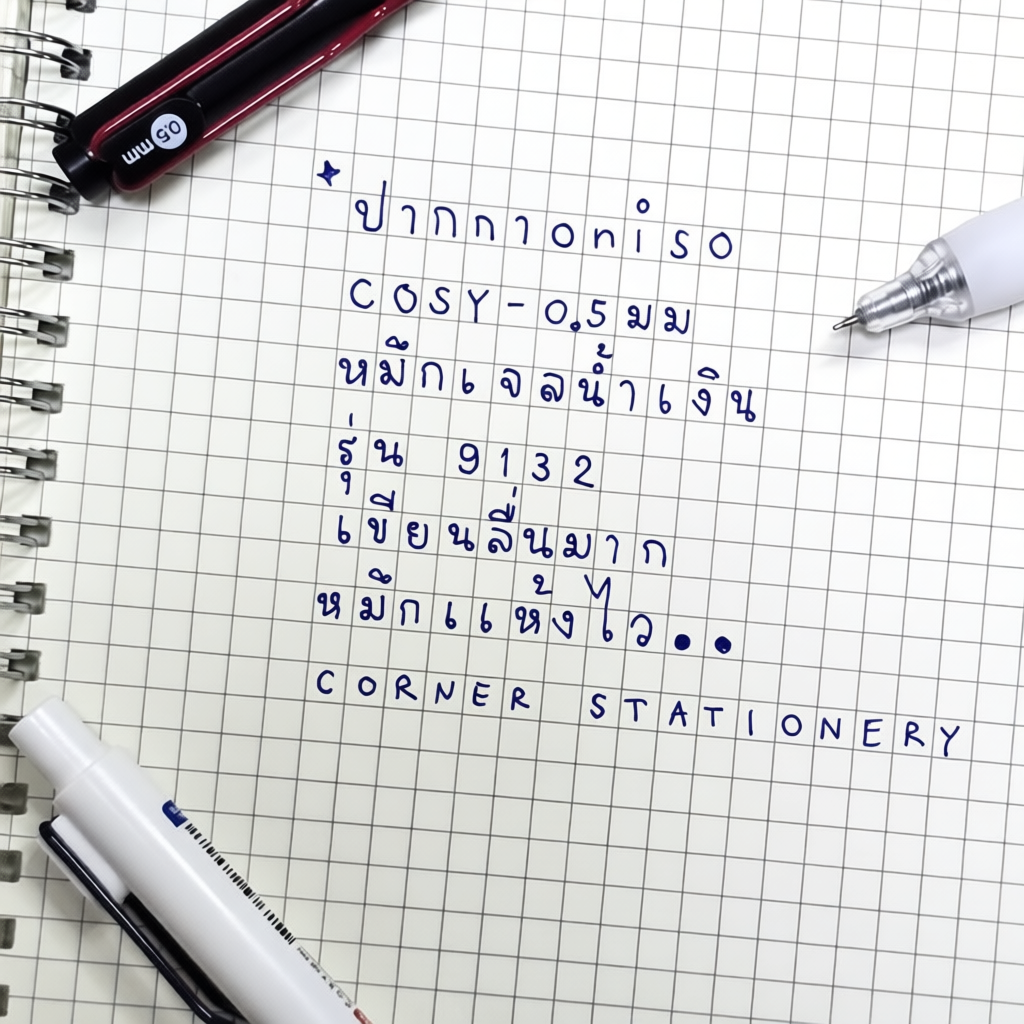 0.5 mm
ปากกาoniso
COSY-0.5มม
หมึกเจลน้ำเงิน
รุ่น 9132
เขียนลื่นมาก
หมึกแห้งไว..
CORNER STATIONERY